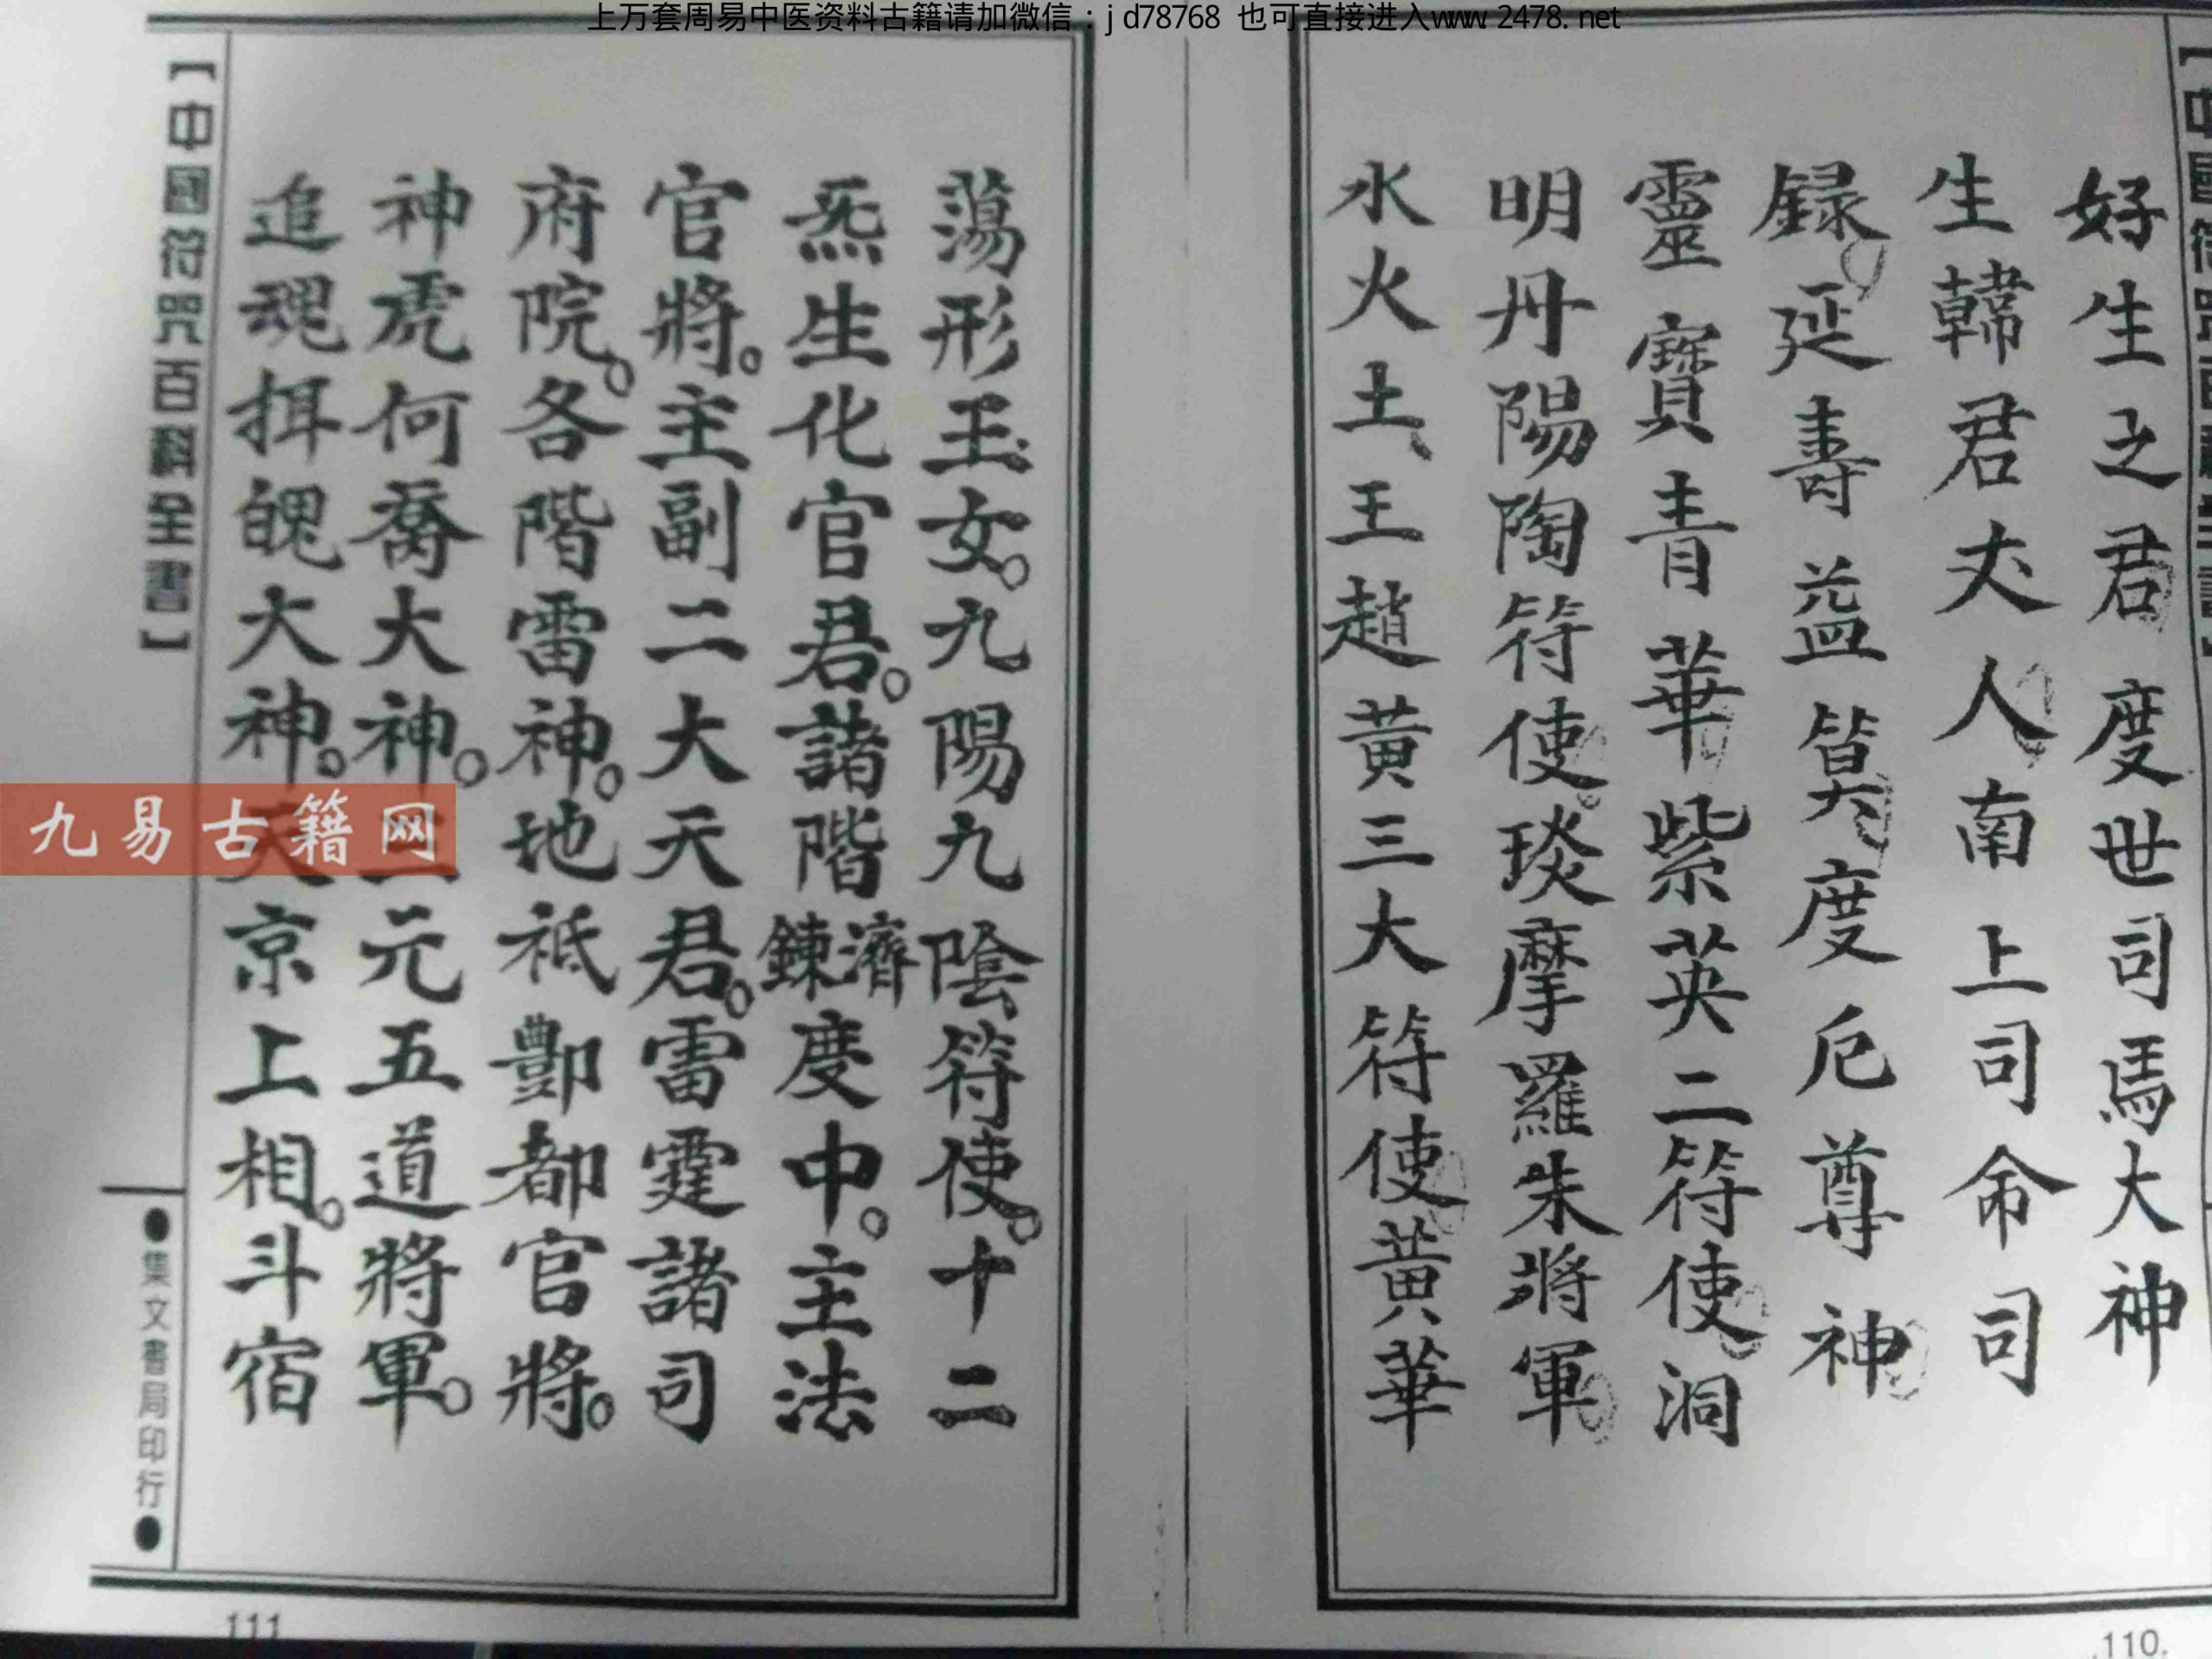 上万套周易中医资料古籍请加微信：jd78768 也可直接进入www.2478.net
好生之君度世司馬大神
生韓君丈人南上司命司
録延壽益筭度厄尊神
靈寶青華紫英二符使洞
明丹陽陶符使琰摩羅朱將軍
水火土王趙黃三大符使黃華
110.
蕩形玉女。九陽九陰符使。十二
炁生化官君。諸階鍊濟度中。主法
官將。主副二大天君。雷霆諸司
府院。各階雷神。地祇酆都官將。
神虎何喬大神。三元五道將軍。
追魂揖魄大神。天京上相。斗宿
【中國符咒百科全書】
●集文書局印行●
111
九易古籍网